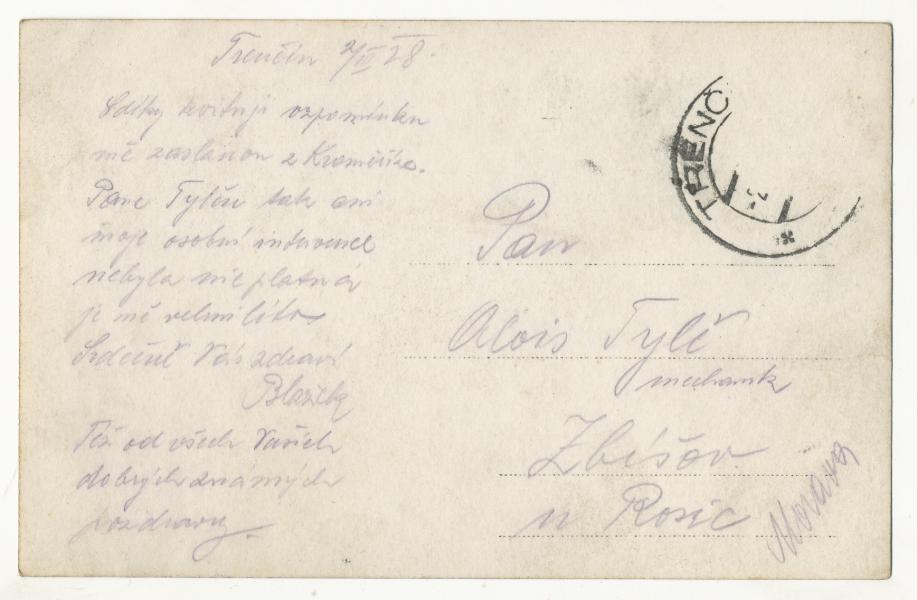 Trenčín 2/III 28.
S díky kvituji vzpomínku
mě zaslanou z Kroměříže.
Pane Tylču tak ani
moje osobní intervence
nebyla nic platná
je mě velmi líto
Srdečně Vás zdraví
Blažek
Též od všech Vašich
dobrých známých
pozdravy.
TRENČ
Pan
Alois Tylč
mechanik
Zbíšov
u Rosic
Morava